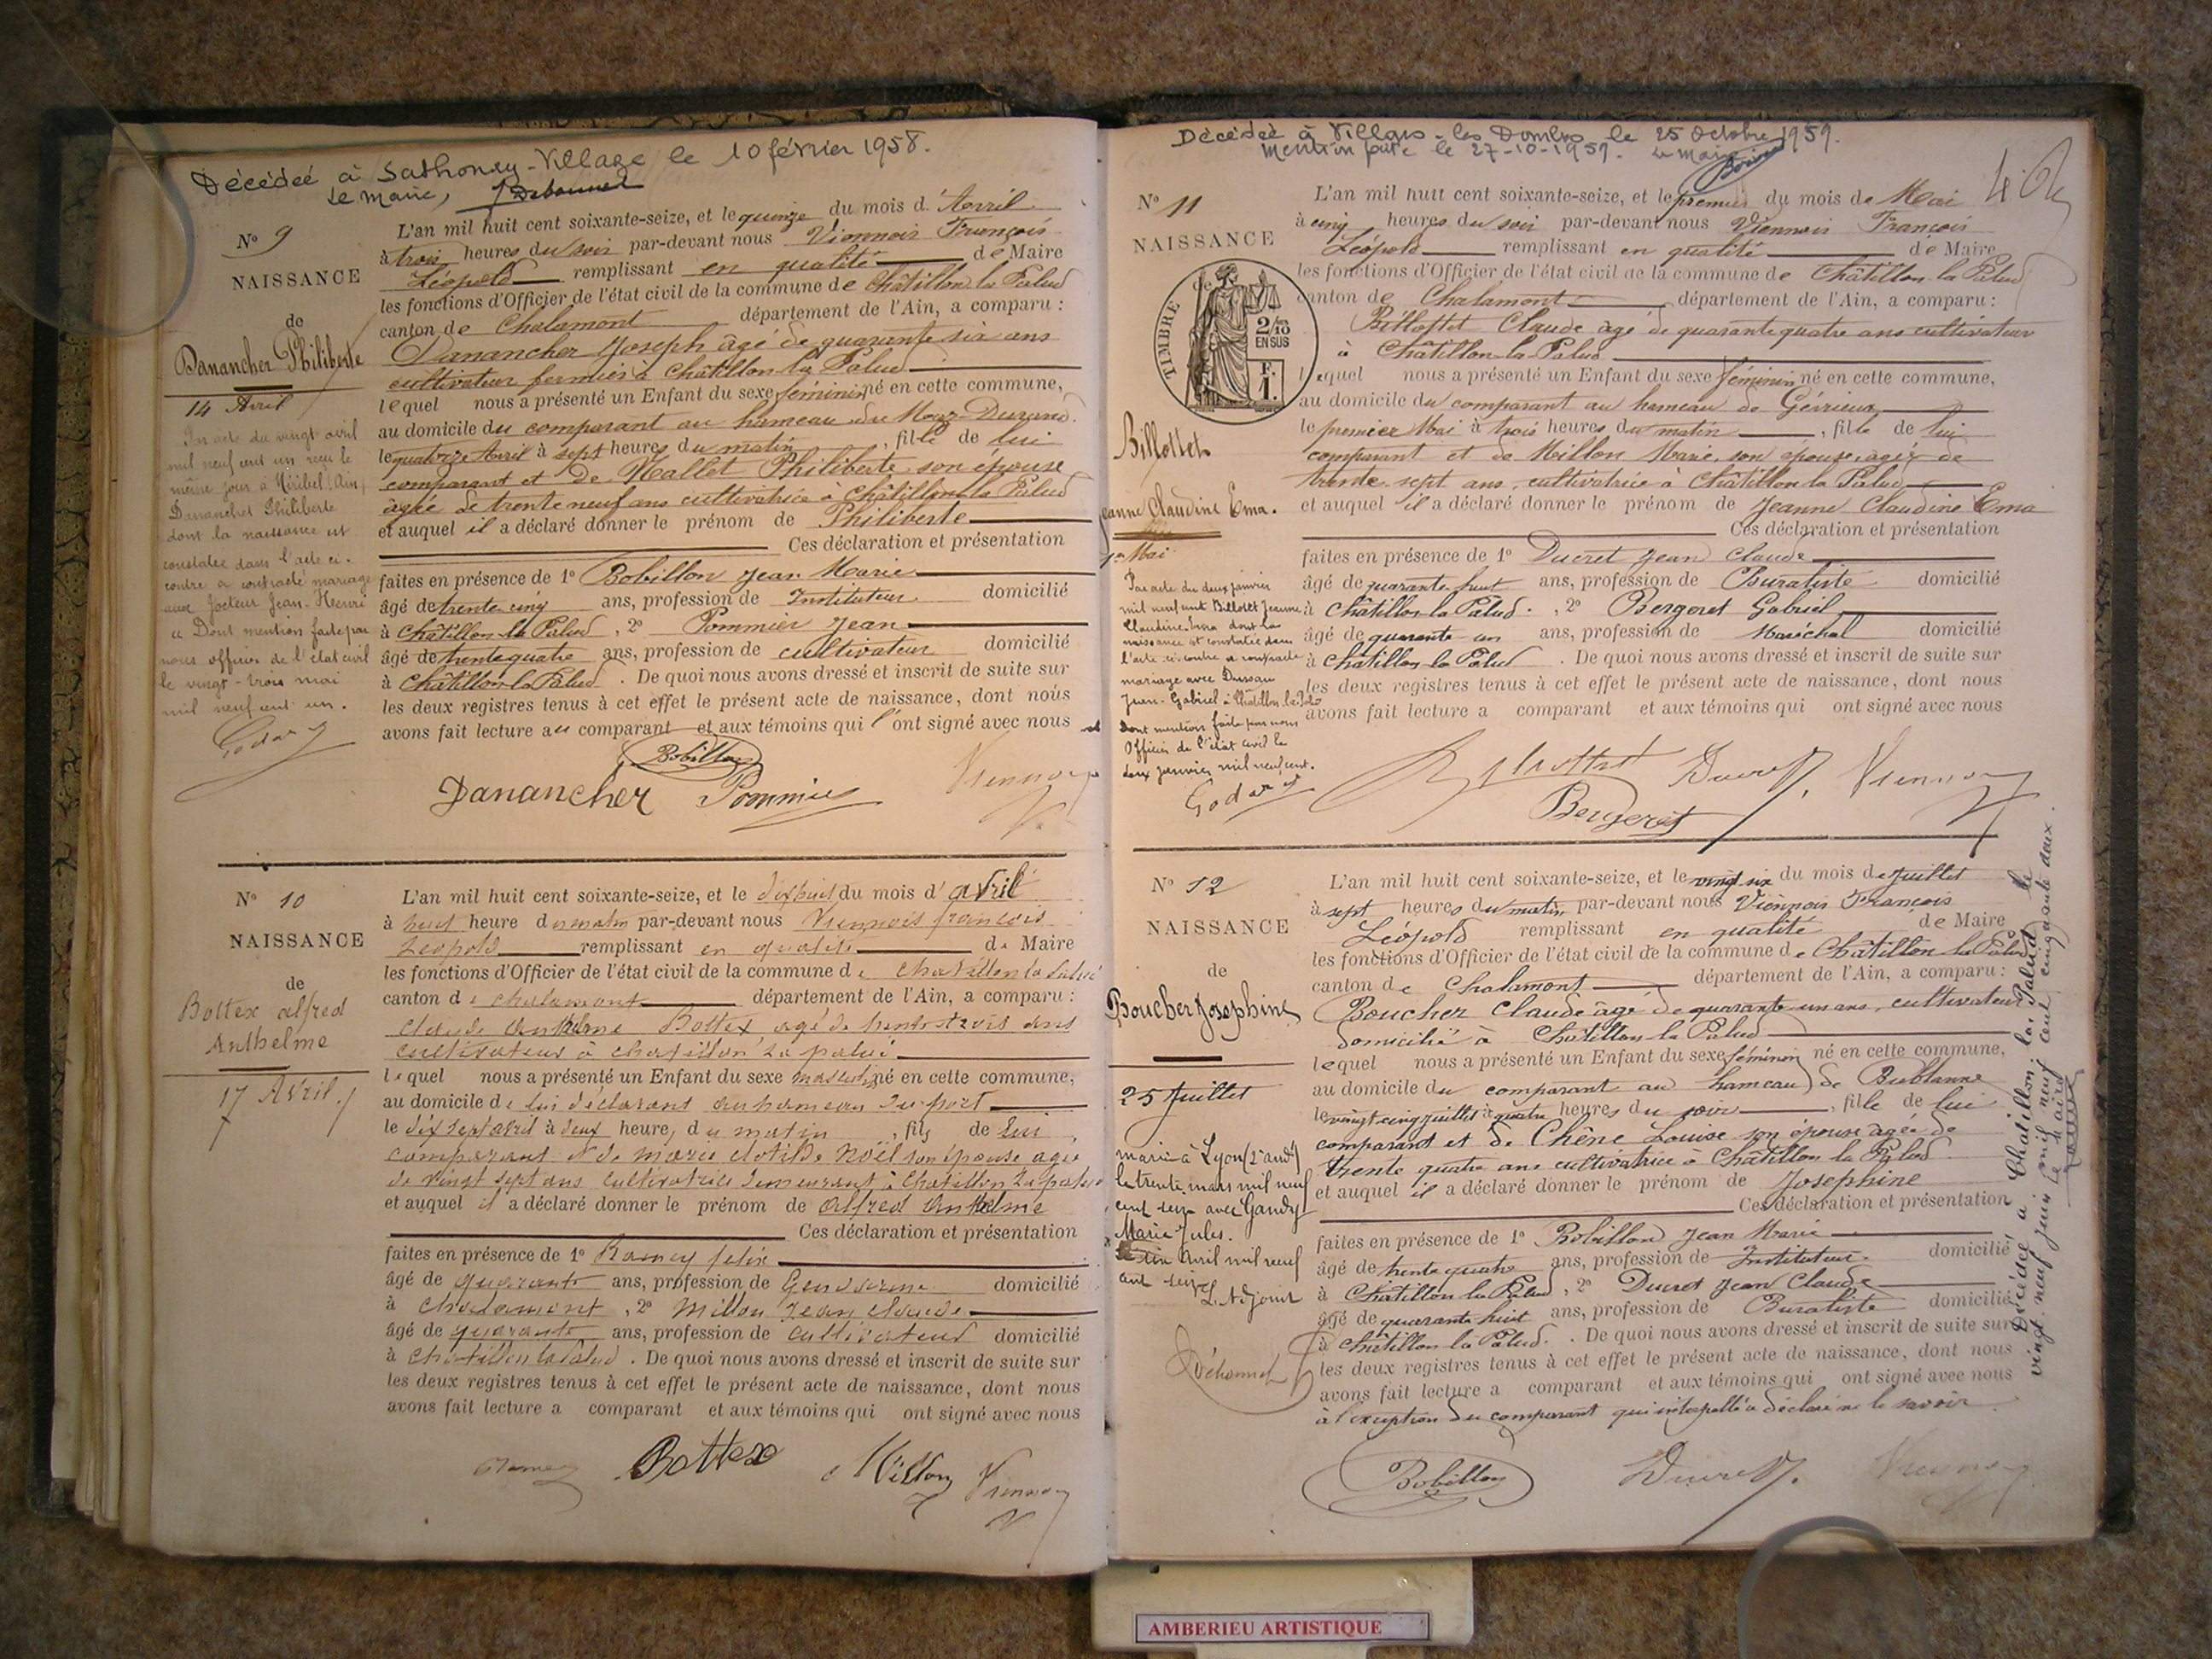 Décédée à Sathonay-Village le 10 février 1958.
Le Maire,
N° 9
NAISSANCE
de
Danancher Philiberte
14 Avril
Par acte du vingt avril
mil neuf cent un reçu le
même jour à Miribel (Ain)
Danancher Philiberte
dont la naissance est
constatée dans l'acte ci-
contre a contracté mariage
avec Jocteur Jean-Henri
Dont mention faite par
nous officier de l'état civil
le vingt-trois mai
mil neuf cent un.
Godar
L'an mil huit cent soixante-seize, et le quinze du mois d'Avril
à trois heures du soir par-devant nous Viennois François
Léopold remplissant en qualité de Maire
les fonctions d'Officier de l'état civil de la commune de Châtillon la Palud
canton de Chalamont département de l'Ain, a comparu :
Danancher Joseph âgé de quarante six ans
cultivateur fermier à Châtillon la Palud
lequel nous a présenté un Enfant du sexe féminin né en cette commune,
au domicile du comparant au hameau du Durand
le quatorze Avril à sept heures du matin, fille de lui
comparant et de Mallet Philiberte son épouse
âgée de trente neuf ans cultivatrice à Châtillon la Palud
et auquel il a déclaré donner le prénom de Philiberte
Ces déclaration et présentation
faites en présence de 1° Bobillon Jean Marie
âgé de trente cinq ans, profession de Instituteur domicilié
à Châtillon la Palud, 2° Pommier Jean
âgé de trente quatre ans, profession de cultivateur domicilié
à Châtillon la Palud. De quoi nous avons dressé et inscrit de suite sur
les deux registres tenus à cet effet le présent acte de naissance, dont nous
avons fait lecture au comparant et aux témoins qui l'ont signé avec nous
Bobillon
Danancher Pommier Viennois
N° 10
NAISSANCE
de
Bottex alfred
Anthelme
17 Avril
L'an mil huit cent soixante-seize, et le dixhuit du mois d'avril
à neuf heure du matin par-devant nous Viennois françois
Léopold remplissant en qualité de Maire
les fonctions d'Officier de l'état civil de la commune de Chatillon la Palud
canton de chalamont département de l'Ain, a comparu :
claude anthelme Bottex agé de trente trois ans
cultivateur à chatillon la palud
lequel nous a présenté un Enfant du sexe masculin né en cette commune,
au domicile de lui déclarant au hameau du port
le dix sept avril à deux heure, du matin, fils de lui
comparant et de marie clotilde Noël son épouse agée
de vingt sept ans cultivatrice demeurant à Chatillon la palud
et auquel il a déclaré donner le prénom de alfred anthelme
Ces déclaration et présentation
faites en présence de 1° Ramey felix
âgé de quarante ans, profession de Gendarme domicilié
à chalamont, 2° Millon Jean claude
âgé de quarante ans, profession de cultivateur domicilié
à chatillon la Palud. De quoi nous avons dressé et inscrit de suite sur
les deux registres tenus à cet effet le présent acte de naissance, dont nous
avons fait lecture a comparant et aux témoins qui ont signé avec nous
Ramey Bottex Millon Viennois
Décédée à Villars-les-Dombes le 25 Octobre 1959.
Mention faite le 27-10-1959. Le Maire
N° 11
NAISSANCE
de
TIMBRE
2/10
EN SUS
F.
1.
Billottet
Jeanne Claudine Ema.
1er Mai
Par acte du deux janvier
mil neuf cent Billottet Jeanne
Claudine Ema dont la
naissance est constatée dans
l'acte ci-contre a contracté
mariage avec Dussau
Jean-Gabriel à Châtillon-la-Palud
dont mention faite par nous
Officier de l'état civil le
deux janvier mil neuf cent.
Godar
L'an mil huit cent soixante-seize, et le premier du mois de Mai
à cinq heures du soir par-devant nous Viennois François
Léopold remplissant en qualité de Maire
les fonctions d'Officier de l'état civil de la commune de Châtillon la Palud
canton de Chalamont département de l'Ain, a comparu :
Billottet Claude âgé de quarante quatre ans cultivateur
à Châtillon la Palud
lequel nous a présenté un Enfant du sexe féminin né en cette commune,
au domicile du comparant au hameau de Gévrieux
le premier Mai à trois heures du matin, fille de lui
comparant et de Millon Marie, son épouse, agée de
trente sept ans, cultivatrice à Châtillon la Palud
et auquel il a déclaré donner le prénom de Jeanne Claudine Ema
Ces déclaration et présentation
faites en présence de 1° Ducret Jean Claude
âgé de quarante huit ans, profession de Buraliste domicilié
à Châtillon la Palud, 2° Bergeret Gabriel
âgé de quarante un ans, profession de Maréchal domicilié
à Châtillon la Palud. De quoi nous avons dressé et inscrit de suite sur
les deux registres tenus à cet effet le présent acte de naissance, dont nous
avons fait lecture a comparant et aux témoins qui ont signé avec nous
Billottet Ducret Viennois
Bergeret
N° 12
NAISSANCE
de
Boucher Josephine
25 Juillet
mariée à Lyon (2e arrdt)
le trente mars mil neuf
cent seize avec Gandy
Marie Jules.
avril mil neuf
cent seize
L'Adjoint
L'an mil huit cent soixante-seize, et le vingt six du mois de Juillet
à sept heures du matin par-devant nous Viennois François
Léopold remplissant en qualité de Maire
les fonctions d'Officier de l'état civil de la commune de Châtillon la Palud
canton de Chalamont département de l'Ain, a comparu :
Boucher Claude âgé de quarante un ans, cultivateur
domicilié à Châtillon la Palud
lequel nous a présenté un Enfant du sexe féminin né en cette commune,
au domicile du comparant au hameau de Bublanne
le vingt cinq juillet à quatre heures du soir, fille de lui
comparant et de Chêne Louise son épouse agée de
trente quatre ans cultivatrice à Châtillon la Palud
et auquel il a déclaré donner le prénom de Josephine
Ces déclaration et présentation
faites en présence de 1° Bobillon Jean Marie
âgé de trente quatre ans, profession de Instituteur domicilié
à Châtillon la Palud, 2° Ducret Jean Claude
âgé de quarante huit ans, profession de Buraliste domicilié
à Châtillon la Palud. De quoi nous avons dressé et inscrit de suite sur
les deux registres tenus à cet effet le présent acte de naissance, dont nous
avons fait lecture a comparant et aux témoins qui ont signé avec nous
à l'exception du comparant qui interpellé a déclaré ne le savoir.
Bobillon Ducret Viennois
Décédée à Chatillon la Palud le
vingt neuf Juin mil neuf cent cinquante deux.
Le Maire
AMBERIEU ARTISTIQUE